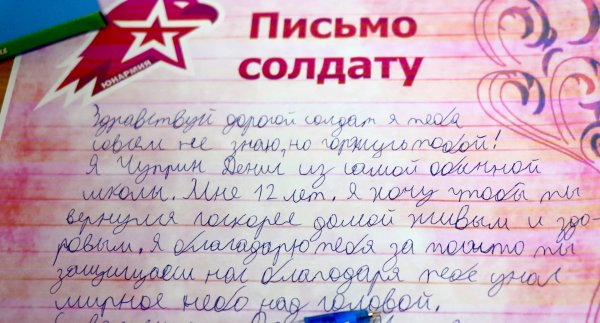 ЮНАРМИЯ
Письмо
солдату
Здравствуй дорогой солдат я тебя
совсем не знаю, но горжусь тобой!
Я Чуприн Денис из самой обычной
школы. Мне 12 лет. Я хочу чтобы ты
вернулся поскорее домой живым и здо-
ровым. Я благадарю тебя за то что ты
защищаеш нас благодаря тебе у нас
мирное небо над головой.